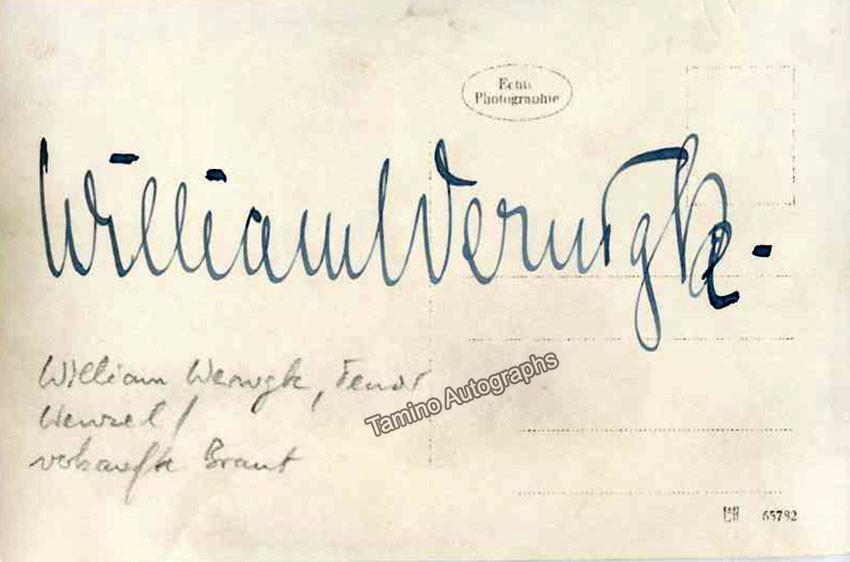 Echte
Photographie
William Wernigk
William Wernigk, Tenor
Wenzel /
verkaufte Braut
Tamino Autographs
65782